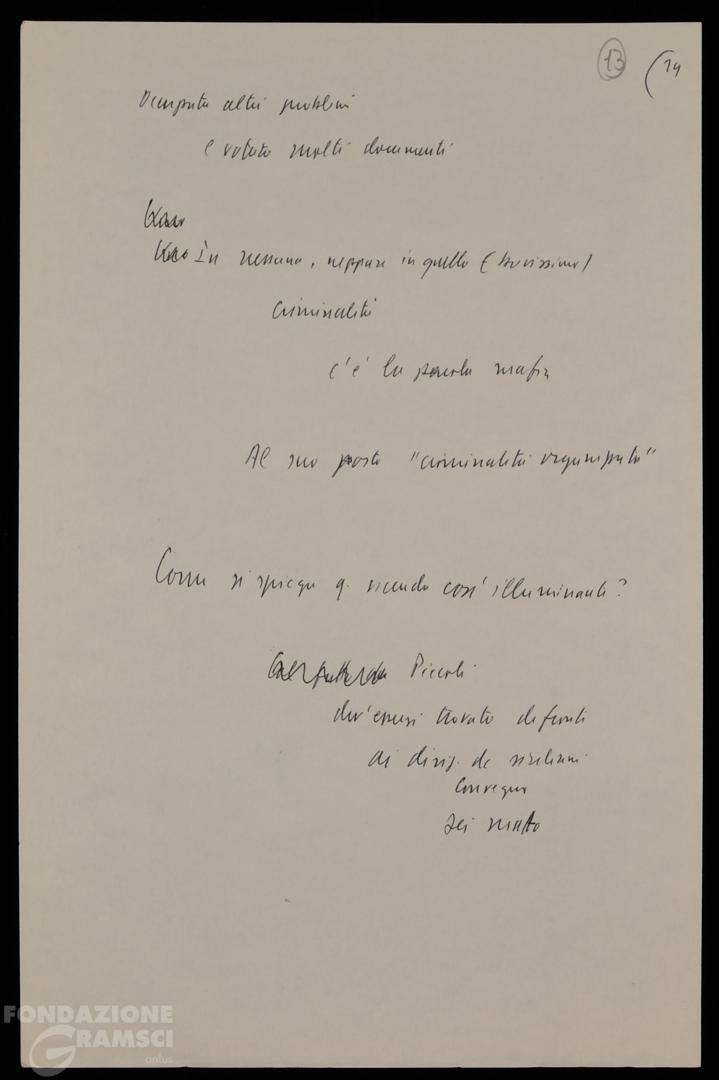 13 (14
altri problemi
e votato molti documenti
In nessuno, neppure in quello (bruttissimo)
criminalità
c'è la parola mafia
Al suo posto "criminalità organizzata"
Come si spiega q. vicenda così illuminante?
Piccoli
dev'essersi trovato di fronte
ai dirig. dc siciliani
Convegno
sei matto
FONDAZIONE
GRAMSCI
onlus